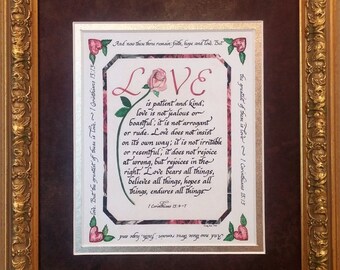 And now these three remain: faith, hope and love. But
the greatest of these is love. ~ 1 Corinthians 13:13
LOVE
is patient and kind;
love is not jealous or
boastful; it is not arrogant
or rude. Love does not insist
on its own way; it is not irritable
or resentful; it does not rejoice
at wrong, but rejoices in the
right. Love bears all things,
believes all things, hopes all
things, endures all things.
1 Corinthians 13:4-7
And now these three remain: faith, hope and
love. But the greatest of these is love. ~ 1 Corinthians 13:13